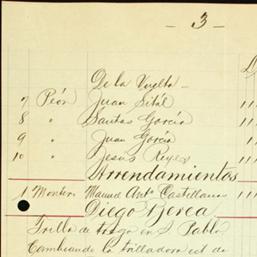 - 3 -
De la Vuelta
7 Peón Juan Sitál 11
8 " Santos García 11
9 " Juan García 11
10 " Jesús Reyes 11
Arrendamientos
1 Montero Manuel Antº Castellanos 11
Diego Berea
Trilla de trigo en S Pablo
Cambiando la trilladora est de